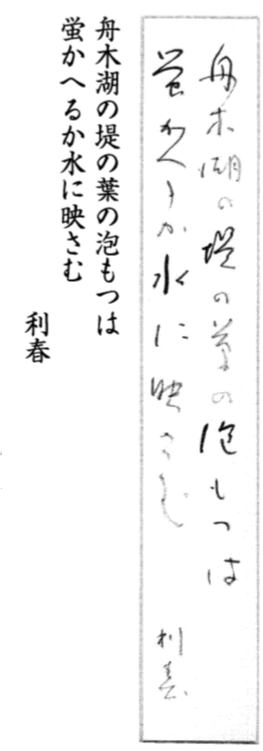 舟木湖の堤の葉の泡もつは
蛍かへるか水に映さむ
利春
舟木湖の堤の葉の泡もつは
蛍かへるか水に映さむ
利春